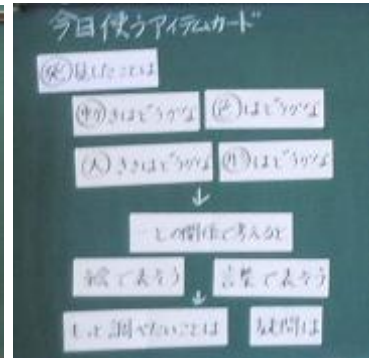 今日使うアイテムカード
発見したことは
はどうかな
大きさはどうかな はどうかな
↓
との関係で考えると
絵で表そう 言葉で表そう
↓
もっと調べたいことは 疑問は